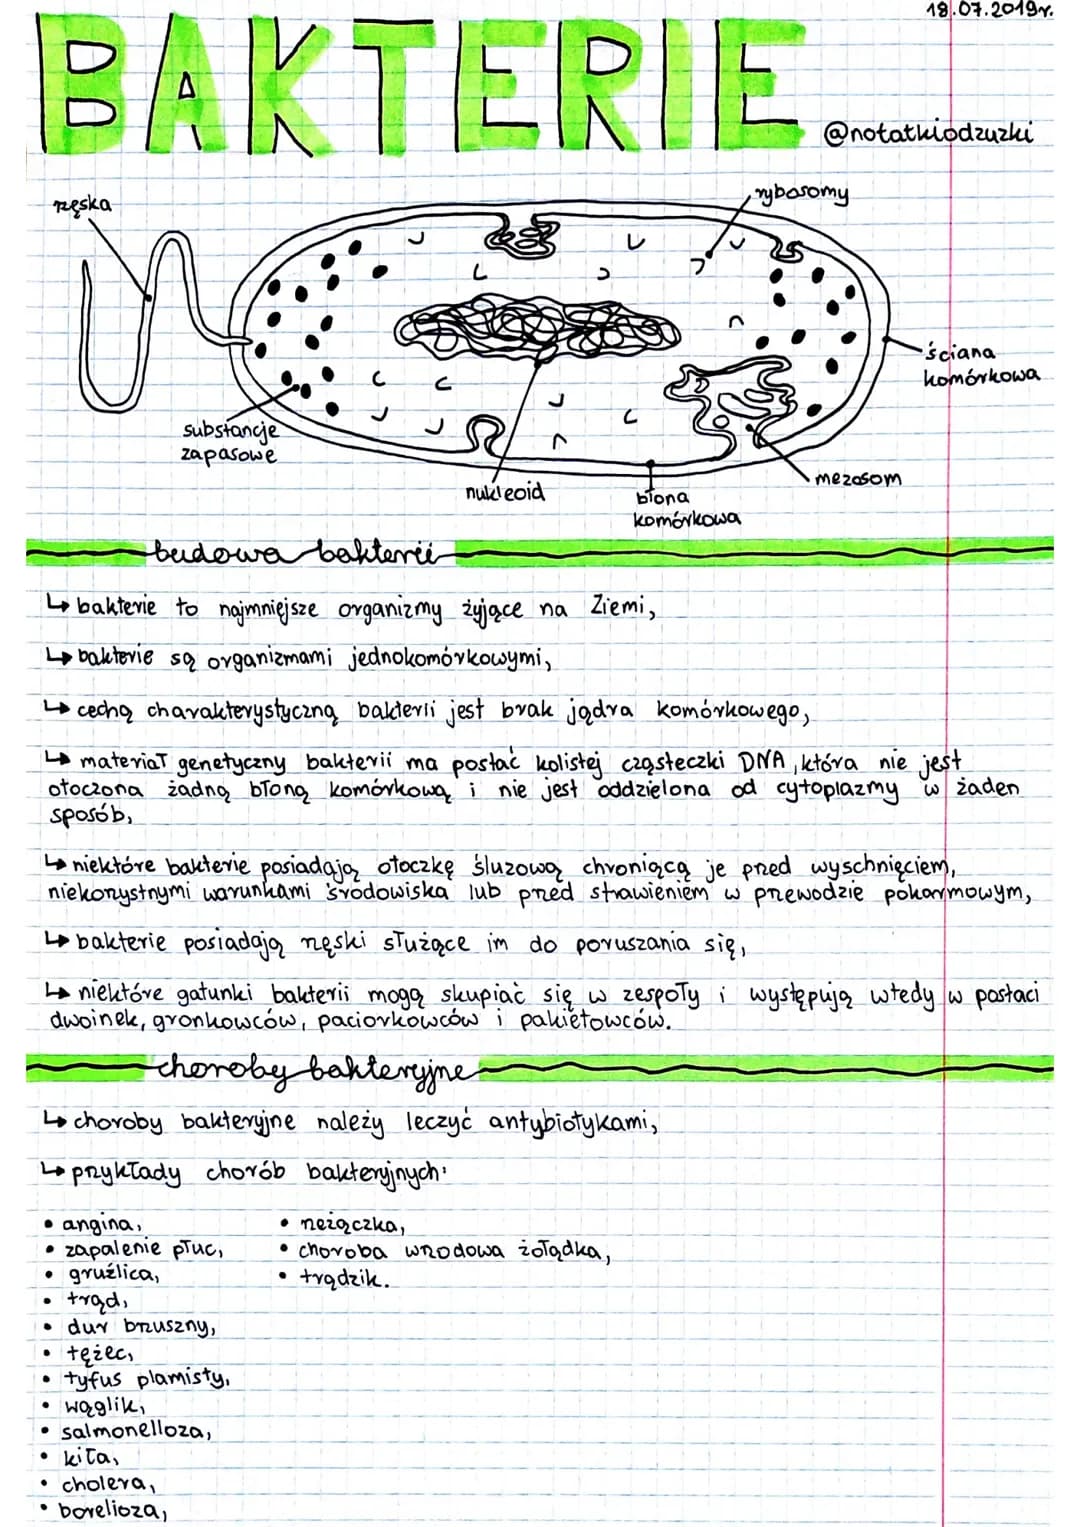 18.07.2019r.
BAKTERIE
@notatkiodzuzki
rzęska
rybosomy
ściana
komórkowa
substancje
zapasowe
mezosom
nukleoid
błona
komórkowa
budowa bakterii
↳ bakterie to najmniejsze organizmy żyjące na Ziemi,
↳ bakterie są organizmami jednokomórkowymi,
↳ cechą charakterystyczną bakterii jest brak jądra komórkowego,
↳ materiał genetyczny bakterii ma postać kolistej cząsteczki DNA, która nie jest
otoczona żadną błoną komórkową i nie jest oddzielona od cytoplazmy w żaden
sposób,
↳ niektóre bakterie posiadają otoczkę śluzową chroniącą je przed wyschnięciem,
niekorzystnymi warunkami środowiska lub przed strawieniem w przewodzie pokarmowym,
↳ bakterie posiadają rzęski służące im do poruszania się,
↳ niektóre gatunki bakterii mogą skupiać się w zespoły i występują wtedy w postaci
dwoinek, gronkowców, paciorkowców i pakietowców.
choroby bakteryjne
↳ choroby bakteryjne należy leczyć antybiotykami,
↳ przykłady chorób bakteryjnych:
• angina,
• zapalenie płuc,
• gruźlica,
• trąd,
• dur brzuszny,
• tężec,
• tyfus plamisty,
• wąglik,
• salmonelloza,
• kiła,
• cholera,
• borelioza,
• rzeżączka,
• choroba wrzodowa żołądka,
• trądzik.